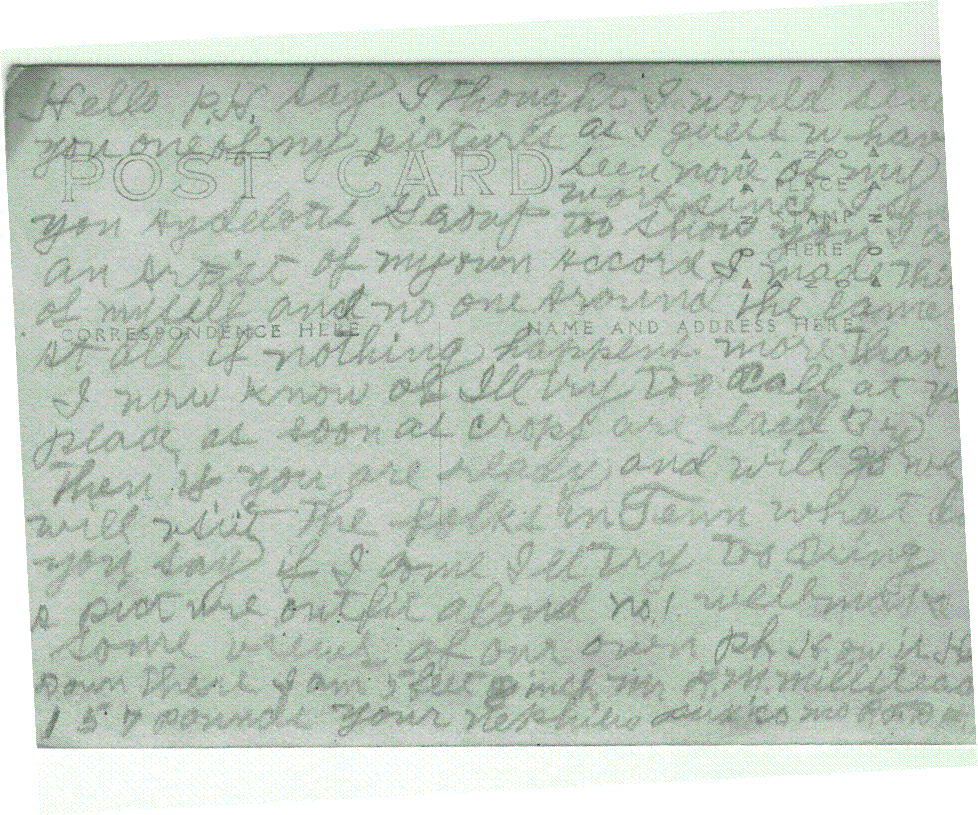 Hello P.H. say I thought I would
you one of my pictures as I guess u have
POST CARD
seen none of my
PLACE
work since I
STAMP
you Aydelotts Group too show you I
HERE
an Artist of my own accord I made this
of myself and no one around the
CORRESPONDENCE HERE
NAME AND ADDRESS HERE
at all if nothing happens more than
I now know of I'll try too Call at
place as soon as crops are laid By
Then if you are ready and will go we
will visit the folks in Tenn what
you say if I come I'll try too Bring
a picture outfit alond No. 1. well make
some views of our own ph How is
Down there I am 5 feet inch Mr A.M. Millstead
157 pounds your Nephew Puxico Mo